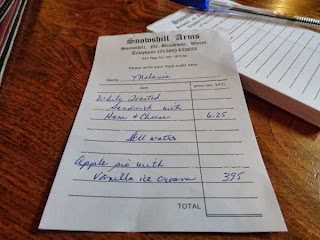 Snowshill Arms
Snowshill, Nr. Broadway, Worcs.
Telephone
Please write your food order here
Name Melanie
Item Price (inc. VAT)
White Toasted
Sandwich with
Ham + Cheese 6.25
Still water
Apple pie with
Vanilla ice cream 395
TOTAL